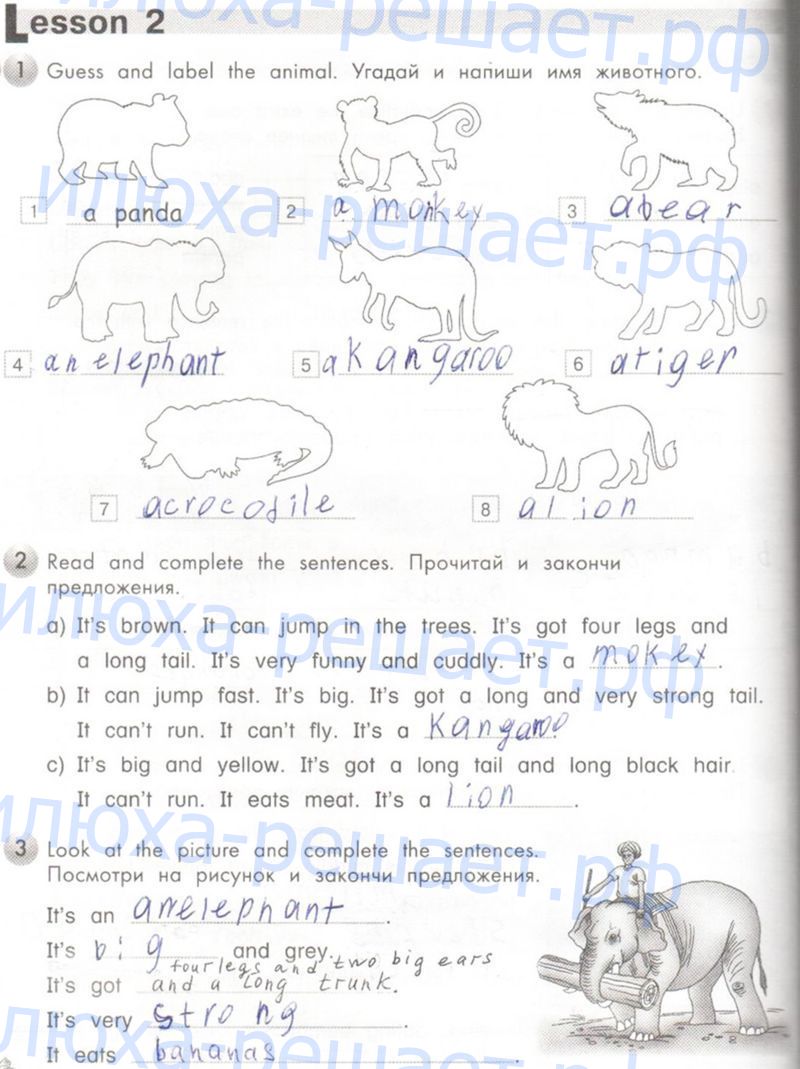 Lesson 2
1 Guess and label the animal. Угадай и напиши имя животного.
1 a panda 2 a monkey 3 a bear
4 an elephant 5 a kangaroo 6 a tiger
7 a crocodile 8 a lion
2 Read and complete the sentences. Прочитай и закончи
предложения.
a) It's brown. It can jump in the trees. It's got four legs and
a long tail. It's very funny and cuddly. It's a mokey.
b) It can jump fast. It's big. It's got a long and very strong tail.
It can't run. It can't fly. It's a kangaroo.
c) It's big and yellow. It's got a long tail and long black hair.
It can't run. It eats meat. It's a lion.
3 Look at the picture and complete the sentences.
Посмотри на рисунок и закончи предложения.
It's an an elephant.
It's big and grey.
four legs and two big ears
It's got and a long trunk.
It's very strong.
It eats bananas.
илюха-решает.рф
илюха-решает.рф
илюха-решает.рф
илюха-решает.рф
илюха-решает.рф